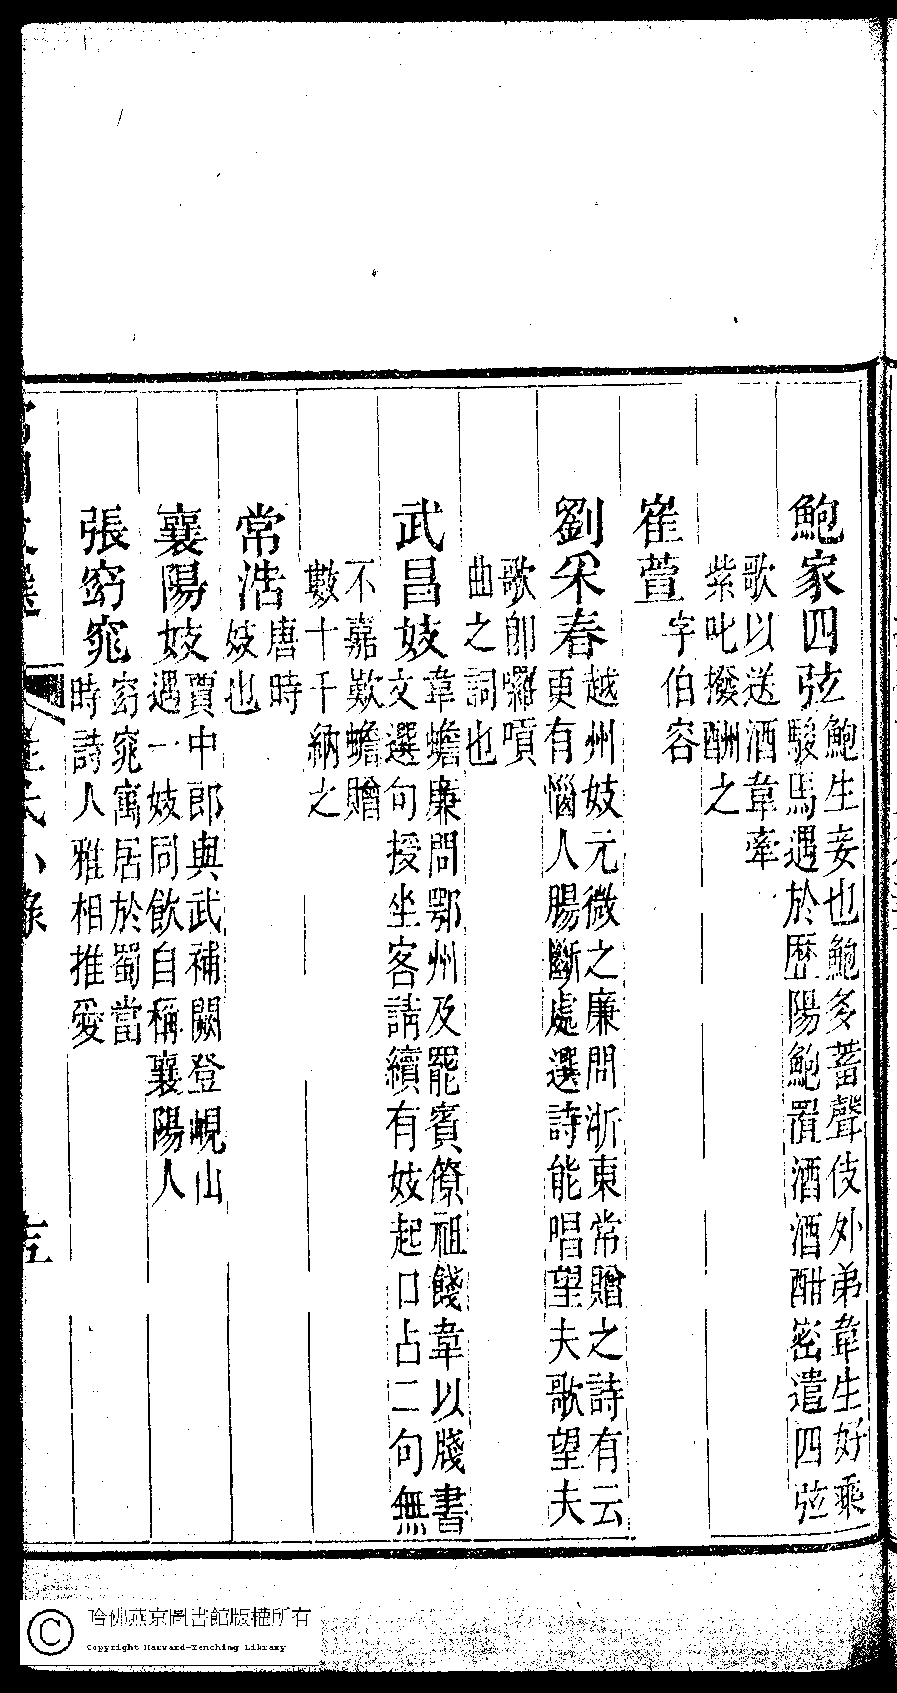 鮑家四弦鮑生妾也鮑多蓄聲伎外弟韋生好乘
駿馬遇於歷陽鮑置酒酒酣密遣四弦
歌以送酒韋牽
紫叱撥酬之
崔萱字伯容
劉采春越州妓元微之廉問浙東常贈之詩有云
更有惱人腸斷處選詩能唱望夫歌望夫
歌卽囉嗊
曲之詞也
武昌妓韋蟾廉問鄂州及罷賓僚祖餞韋以牋書
文選句授坐客請續有妓起口占二句無
不嘉歎蟾贈
數十千納之
常浩唐時
妓也
襄陽妓賈中郎與武補闕登峴山
遇一妓同飲自稱襄陽人
張窈窕窈窕寓居於蜀當
時詩人雅相推愛
哈佛燕京圖書館版權所有
Copyright Harvard-Yenching Library